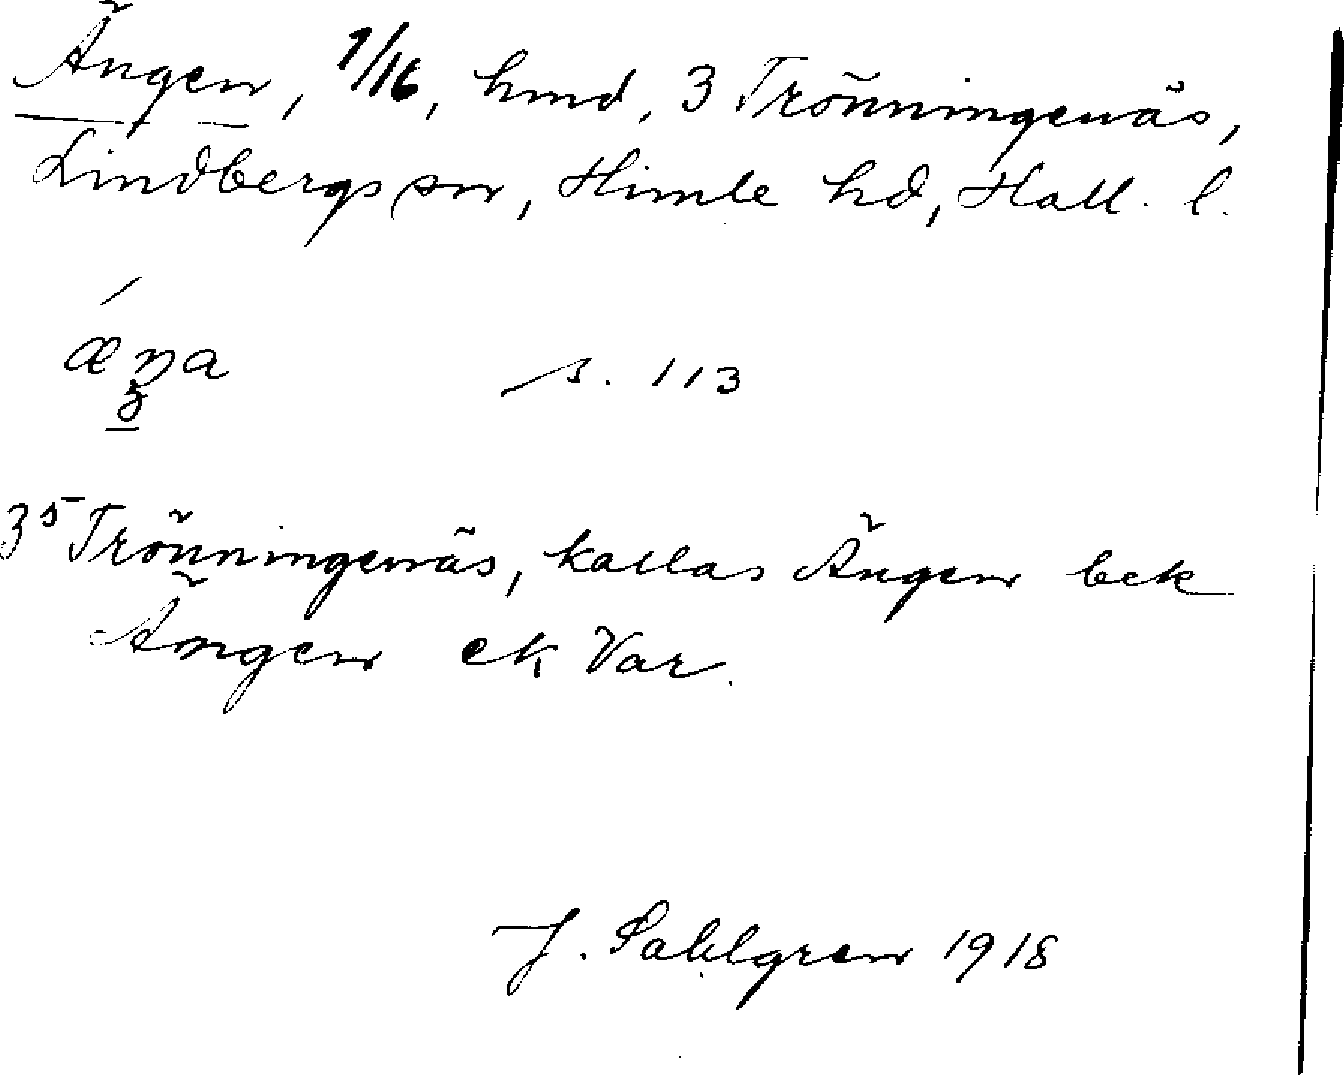 Ängen, 1/16, hmd, 3 Tröningenäs,
Lindbergs sn, Himle hd, Hall. l.
s. 113
3⁵ Tröningenäs, kallas Ängen bek
Ängen ek Var.
J. Sahlgren 1918